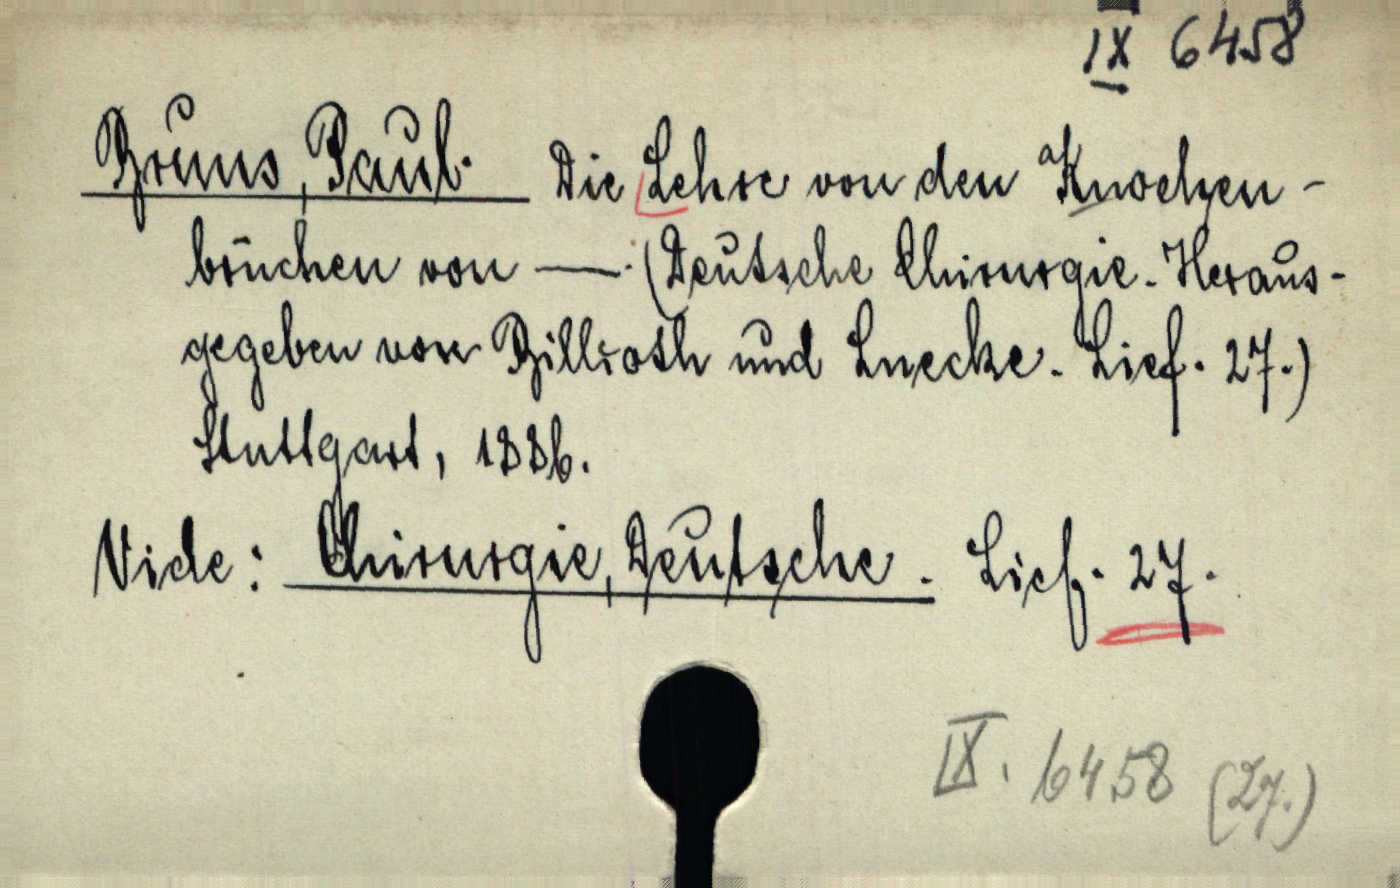 IX 6458
Bruns, Paul. Die Lehre von den Knochen-
brüchen von —. (Deutsche Chirurgie. Heraus-
gegeben von Billroth und Luecke. Lief. 27.)
Stuttgart, 1886.
Vide: Chirurgie, Deutsche. Lief. 27.
IX. 6458 (27.)